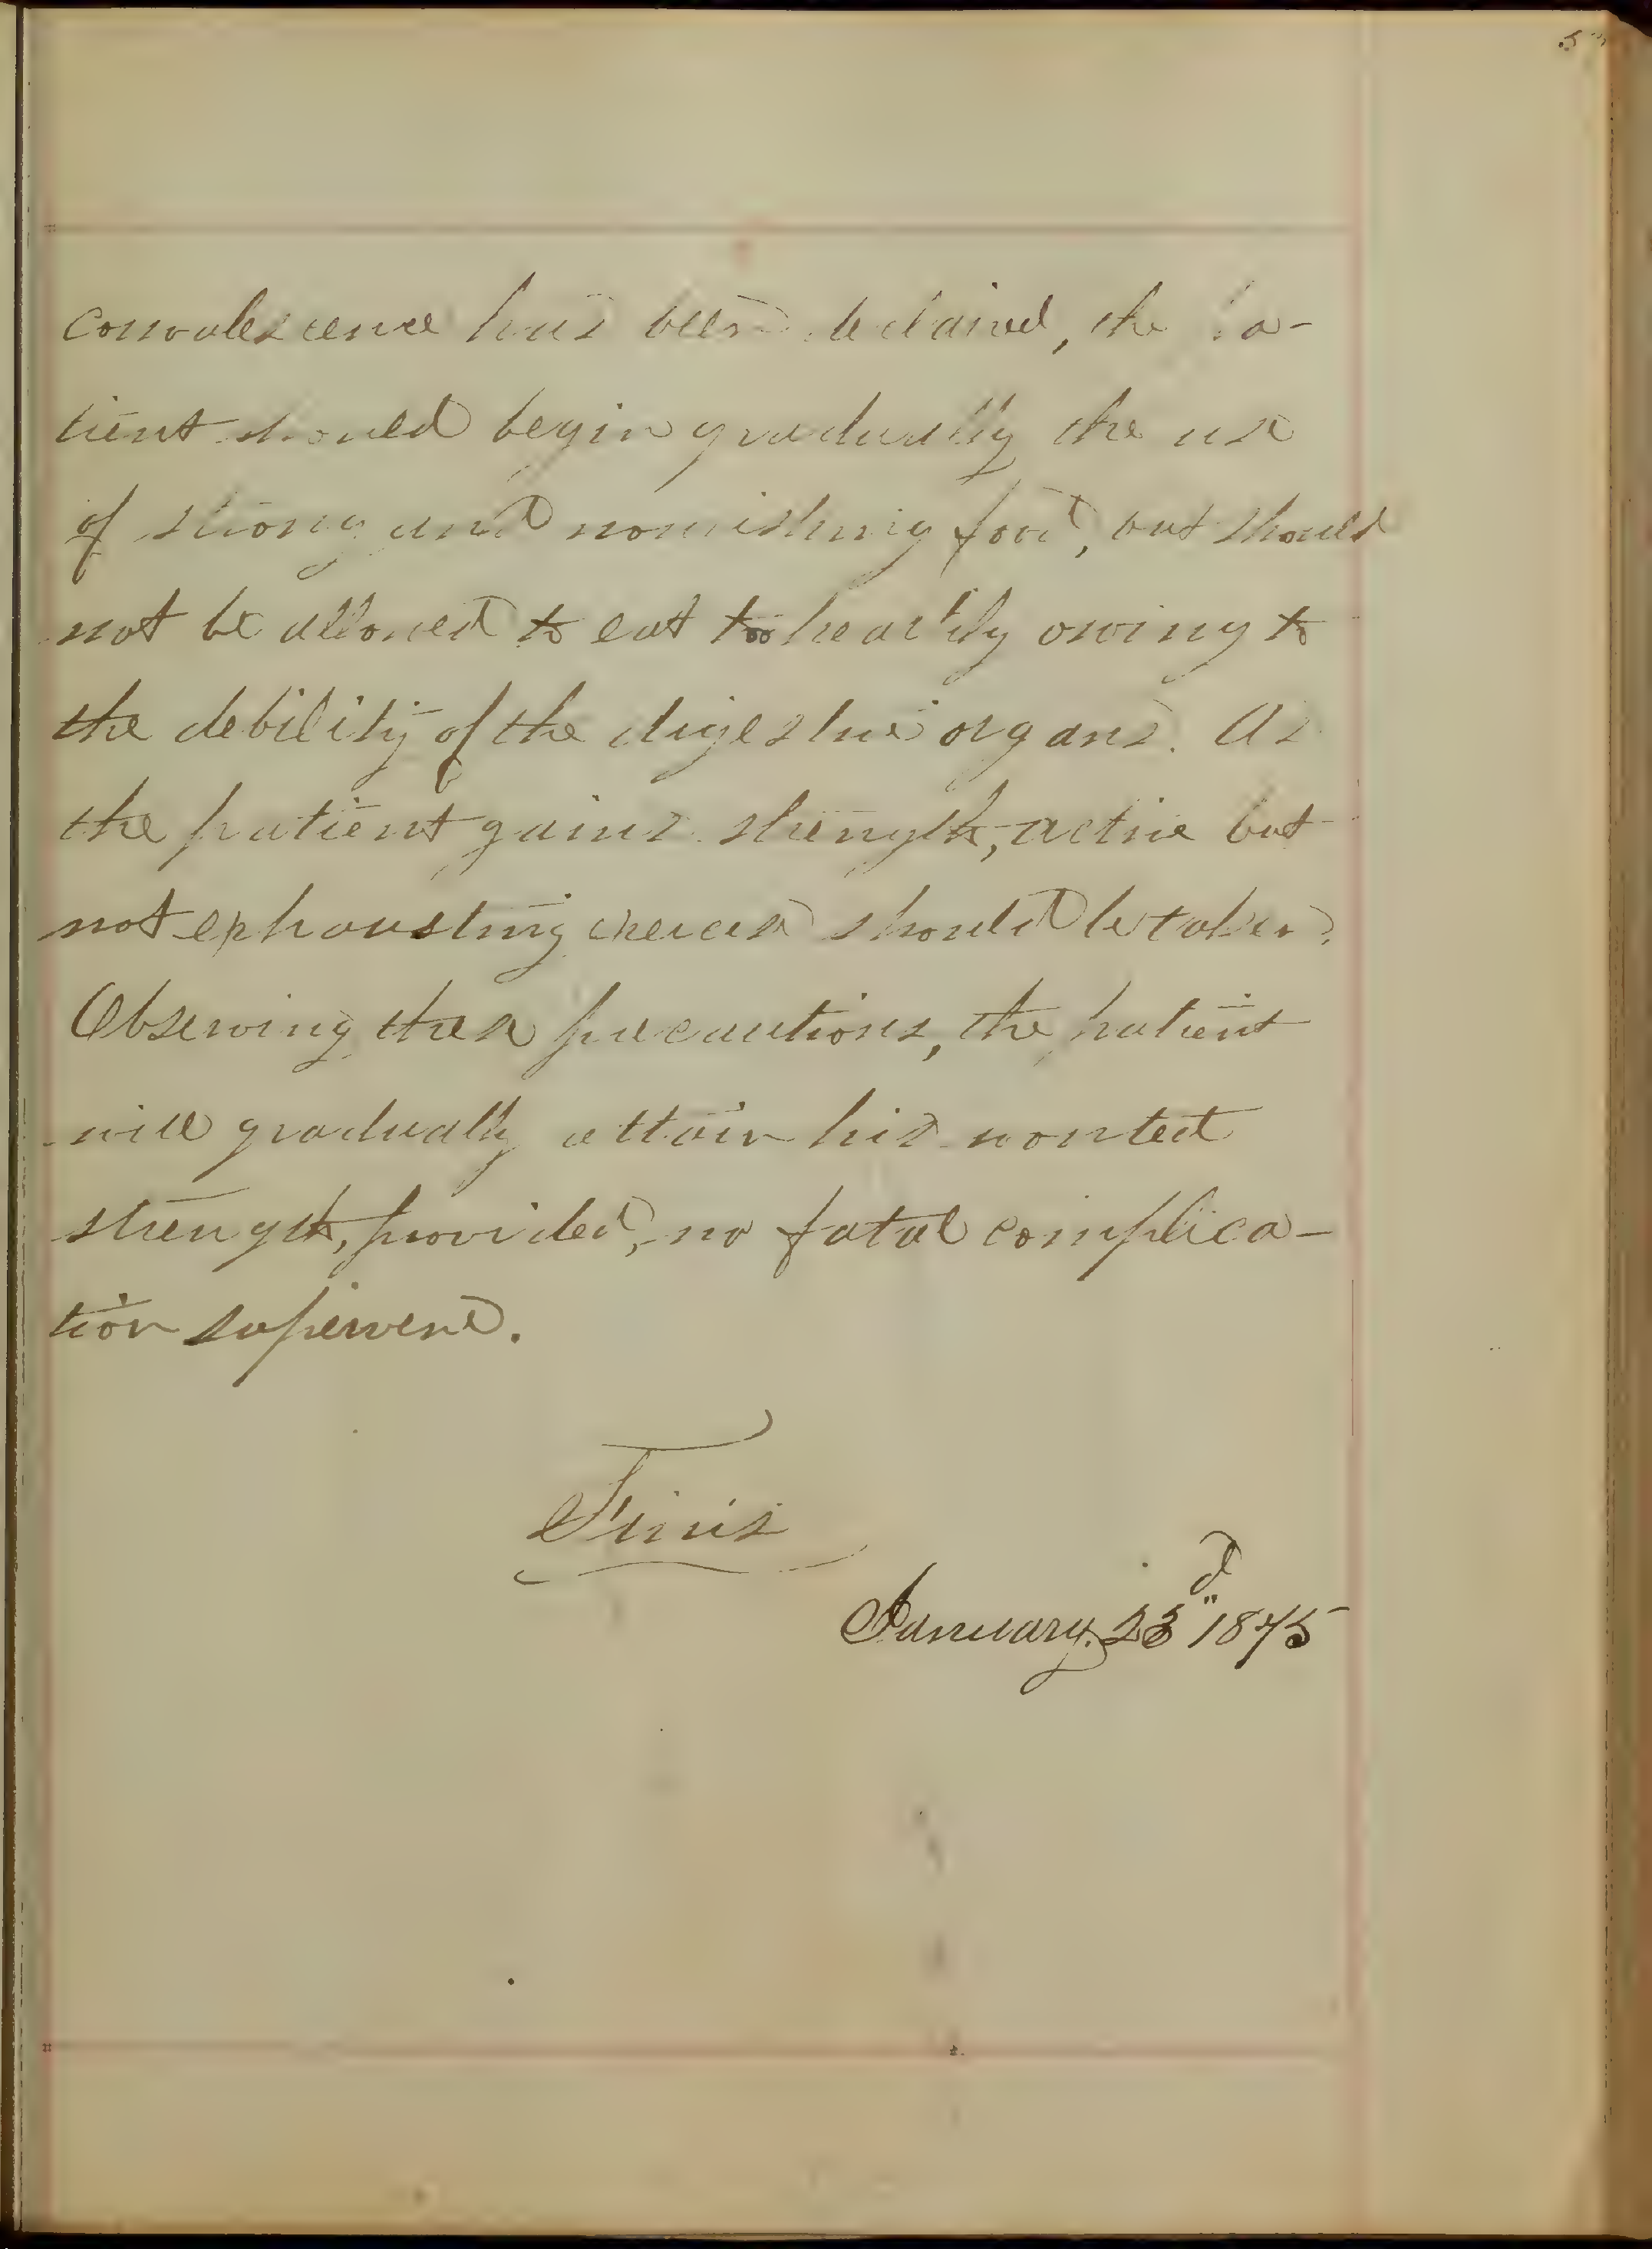 convalescence has been declared, the pa-
tient should begin gradually the use
of strong and nourishing food, but should
not be allowed to eat too heartily owing to
the debility of the digestive organs. As
the patient gains strength, active but
not exhausting exercise should be taken.
Observing these precautions, the patient
will gradually attain his wonted
strength, provided, no fatal complica-
tion supervene.
Finis
January. 23d 1875